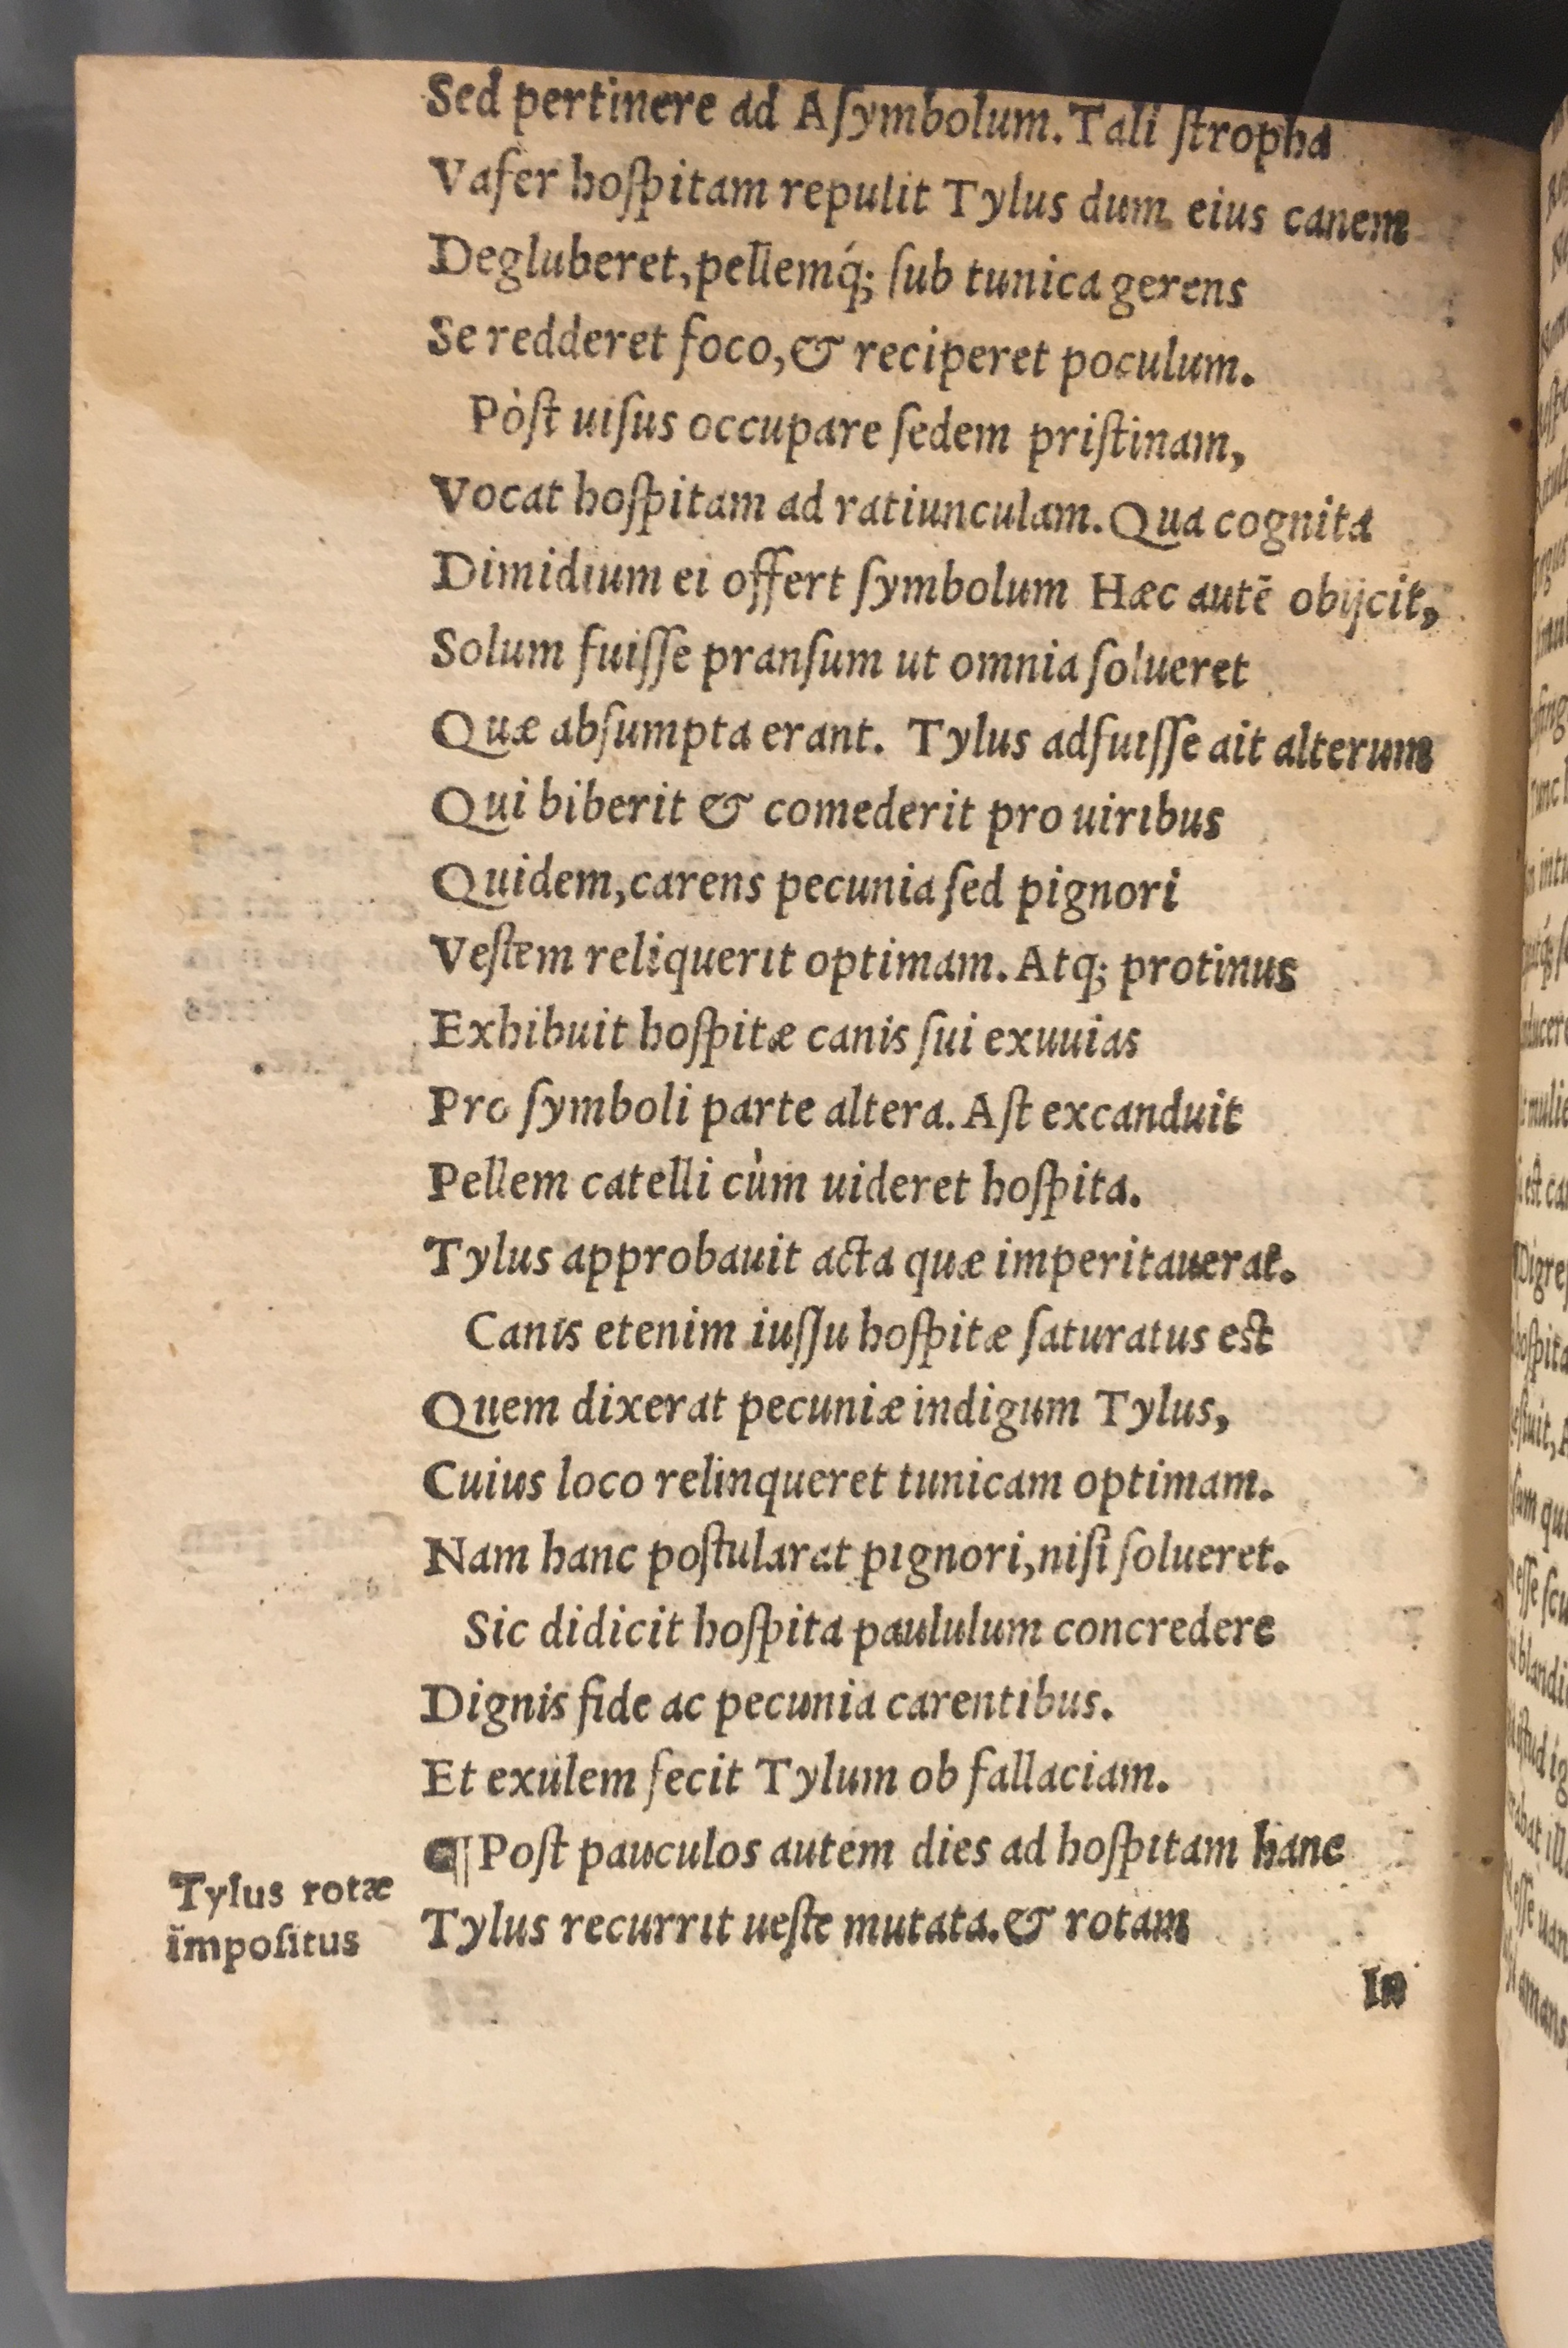 Sed pertinere ad Aſymbolum. Tali ſtropha
Vafer hoſpitam repulit Tylus dum eius canem
Degluberet, pellemq́; ſub tunica gerens
Se redderet foco, & reciperet poculum.
Pòſt uiſus occupare ſedem priſtinam,
Vocat hoſpitam ad ratiunculam. Qua cognita
Dimidium ei offert ſymbolum Hæc autē obijcit,
Solum fuiſſe pranſum ut omnia ſolueret
Quæ abſumpta erant. Tylus adfuiſſe ait alterum
Qui biberit & comederit pro uiribus
Quidem, carens pecunia ſed pignori
Veſtem reliquerit optimam. Atq; protinus
Exhibuit hoſpitæ canis ſui exuuias
Pro ſymboli parte altera. Aſt excanduit
Pellem catelli cùm uideret hoſpita.
Tylus approbauit acta quæ imperitauerat.
Canis etenim iuſſu hoſpitæ ſaturatus eſt
Quem dixerat pecuniæ indigum Tylus,
Cuius loco relinqueret tunicam optimam.
Nam hanc poſtularat pignori, niſi ſolueret.
Sic didicit hoſpita paululum concredere
Dignis fide ac pecunia carentibus.
Et exulem fecit Tylum ob fallaciam.
¶ Poſt pauculos autem dies ad hoſpitam hanc
Tylus recurrit ueſte mutata. & rotam
Tylus rotæ
impoſitus
In